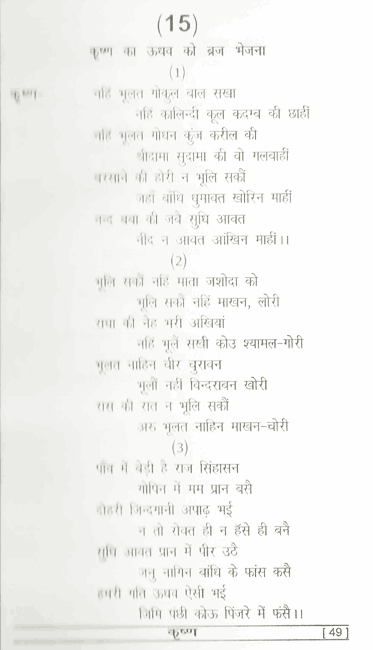 (15)
कृष्ण का ऊधव को ब्रज भेजना
(1)
कृष्ण- नहिं भूलत गोकुल बाल सखा
नहिं कालिन्दी कूल कदम्ब की छाहीं
नहिं भूलत गोधन कुंज करील की
श्रीदामा सुदामा की वो गलबाहीं
बरसाने की होरी न भूलि सकौं
जहाँ बांधि घुमावत खोरिन माहीं
नन्द बबा की जबै सुधि आवत
नींद न आवत आंखिन माहीं।।
(2)
भूलि सकौं नहिं माता जशोदा को
भूलि सकौं नहिं माखन, लोरी
राधा की नेह भरी अखियां
नहिं भूलें सखी कोउ श्यामल-गोरी
भूलत नाहिन चीर चुरावन
भूलौं नहीं विन्दरावन खोरी
रास की रात न भूलि सकौं
अरु भूलत नाहिन माखन-चोरी
(3)
पाँव में बेड़ी है राज सिंहासन
गोपिन में मम प्रान बसै
दोहरी जिन्दगानी अपाढ़ भई
न तो रोवत ही न हँसे ही बनै
सुधि आवत प्रान में पीर उठै
जनु नागिन बांधि के फांस कसै
हमरी गति ऊधव ऐसी भई
जिमि पंछी कोऊ पिंजरे में फंसै।।
कृष्ण [ 49 ]